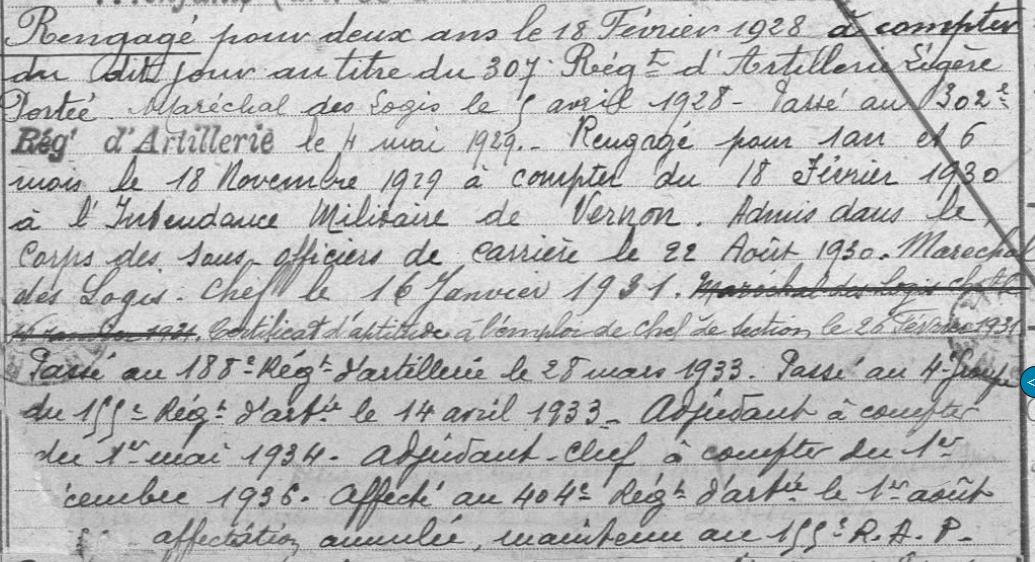 Rengagé pour deux ans le 18 Février 1928 à compter
du dit jour au titre du 307e Régt d'Artillerie Légère
Portée. Maréchal des Logis le 5 avril 1928 - Passé au 302e
Régt d'Artillerie le 4 mai 1929. - Rengagé pour 1 an et 6
mois le 18 Novembre 1929 à compter du 18 Février 1930
à l'Intendance Militaire de Vernon. Admis dans le
Corps des Sous-officiers de carrière le 22 Août 1930. Marécha
des Logis-Chef le 16 Janvier 1931. Maréchal des Logis Chef le
16 Janvier 1931. Certificat d'aptitude à l'emploi de Chef de Section, le 26 Février 1931
Passé au 188e Régt d'artillerie le 28 mars 1933. Passé au 4e Groupe
du 155e Régt d'artie le 14 avril 1933 - Adjudant à compter
du 1er mai 1934. Adjudant-Chef à compter du 1er
cembre 1936. Affecté au 404e Régt d'artie le 1er août
affectation annulée, maintenu au 155e R.A.P.